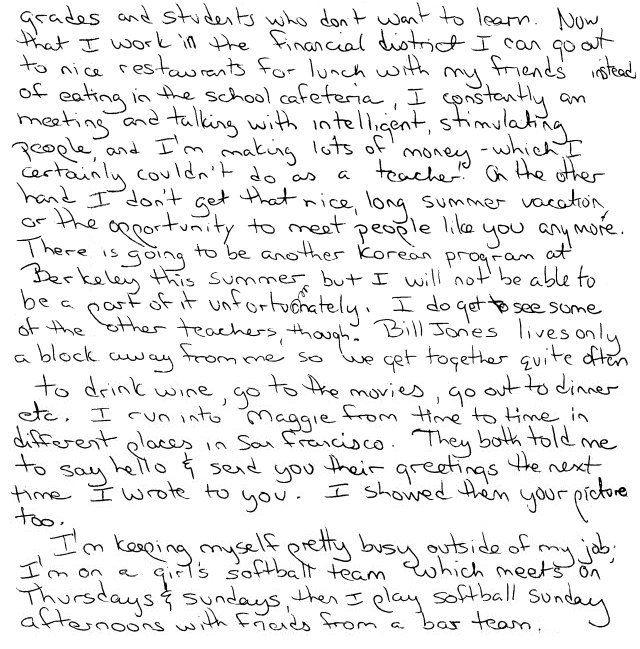 grades and students who don't want to learn. Now
that I work in the financial district I can go out
to nice restaurants for lunch with my friends instead
of eating in the school cafeteria, I constantly am
meeting and talking with intelligent, stimulating
people, and I'm making lots of money - which I
certainly couldn't do as a teacher! On the other
hand I don't get that nice, long summer vacation
or the opportunity to meet people like you anymore.
There is going to be another Korean program at
Berkeley this summer, but I will not be able to
be a part of it unfortunately. I do get to see some
of the other teachers, though. Bill Jones lives only
a block away from me so we get together quite often
to drink wine, go to the movies, go out to dinner
etc. I run into Maggie from time to time in
different places in San Francisco. They both told me
to say hello & send you their greetings the next
time I wrote to you. I showed them your picture
too.
I'm keeping myself pretty busy outside of my job;
I'm on a girl's softball team which meets on
Thursdays & Sundays, then I play softball Sunday
afternoons with friends from a bar team.